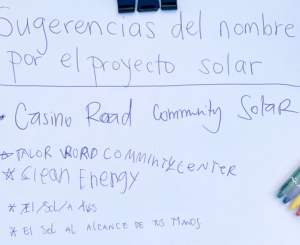 Sugerencias del nombre
por el proyecto solar
* Casino Road Community Solar
* TALOR RORD COMMINTY CENTER
* Clean Energy
* El/Sol/A
* EL SOL AL ALCANCE DE TUS MANOS